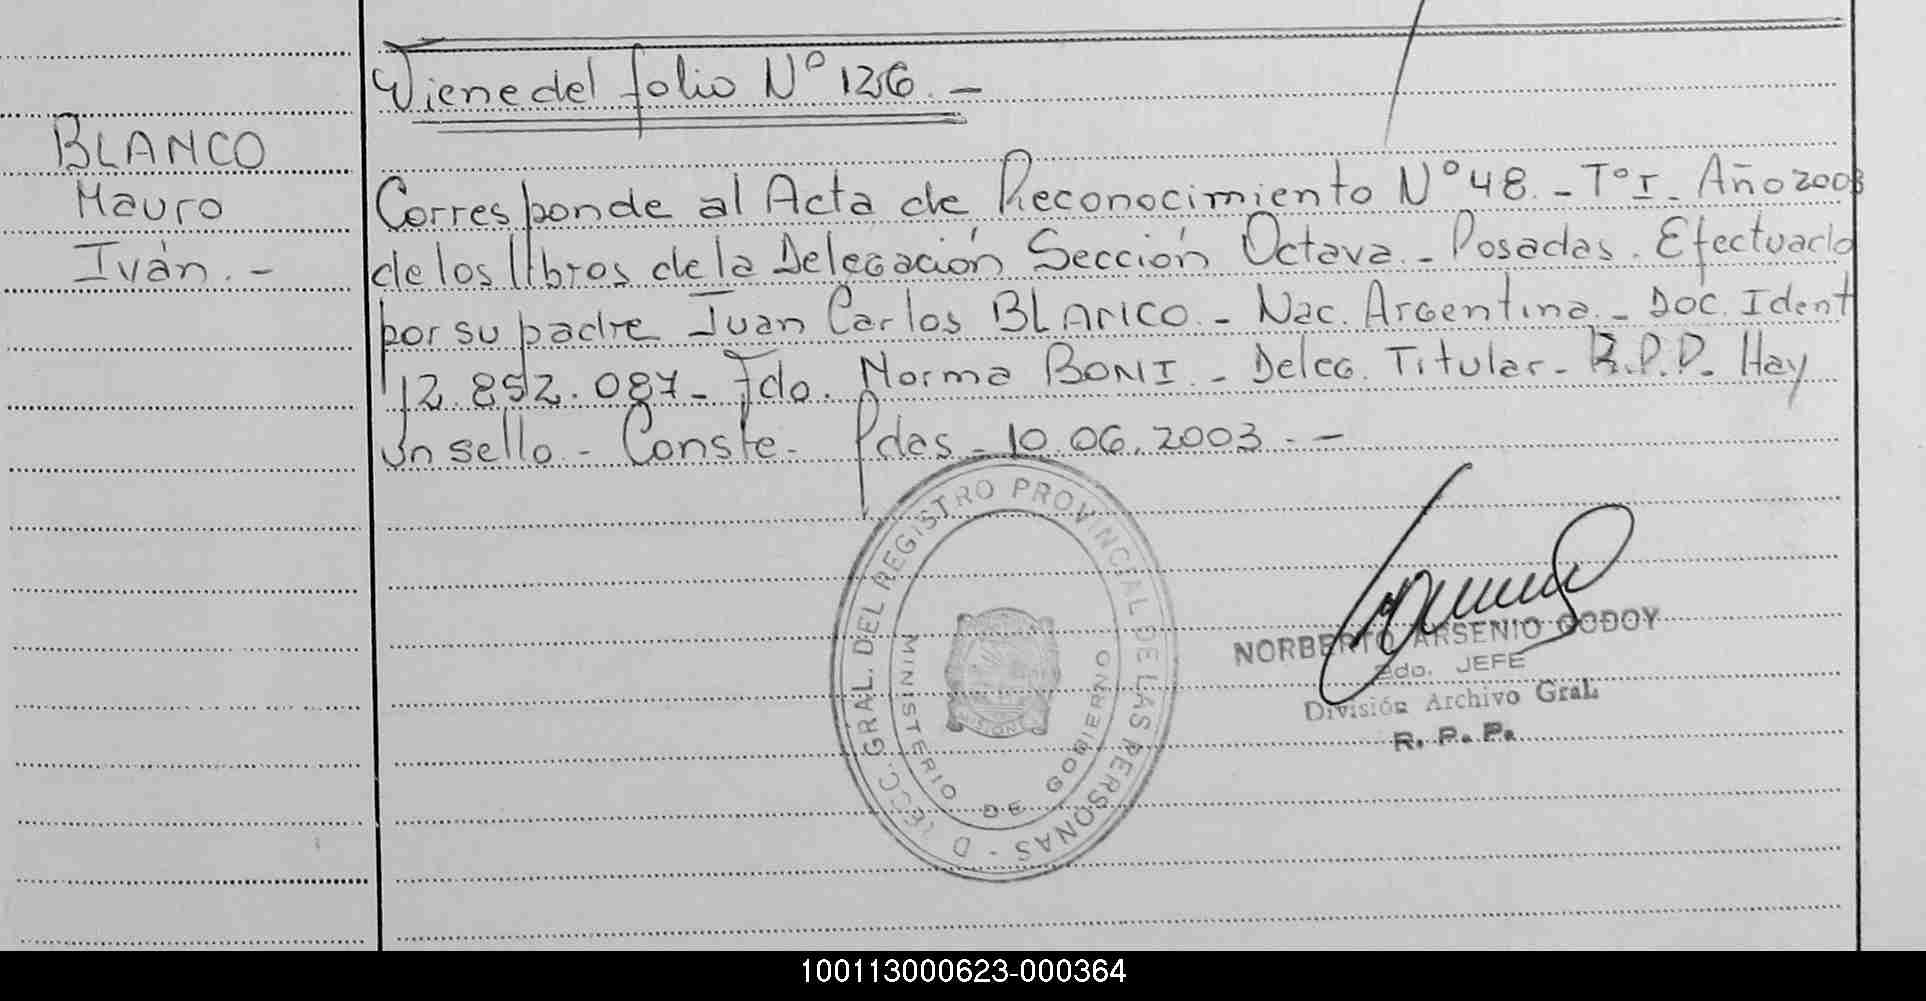 Viene del folio Nº 126. -
BLANCO
Mauro
Iván. -
Corresponde al Acta de Reconocimiento Nº 48. - Tº I - Año 2003
de los libros de la Delegación Sección Octava - Posadas. Efectuado
por su padre Juan Carlos BLANCO - Nac. Argentina - Doc. Ident
12.852.087 - Fdo. Norma BONI. - Deleg. Titular - R.P.P. Hay
un sello - Conste - Pdas - 10.06.2003. -
DIRECC. GRAL. DEL REGISTRO PROVINCIAL DE LAS PERSONAS -
MINISTERIO DE GOBIERNO
MISIONES
NORBERTO ARSENIO GODOY
2do. JEFE
División Archivo Gral.
R. P. P.
100113000623-000364